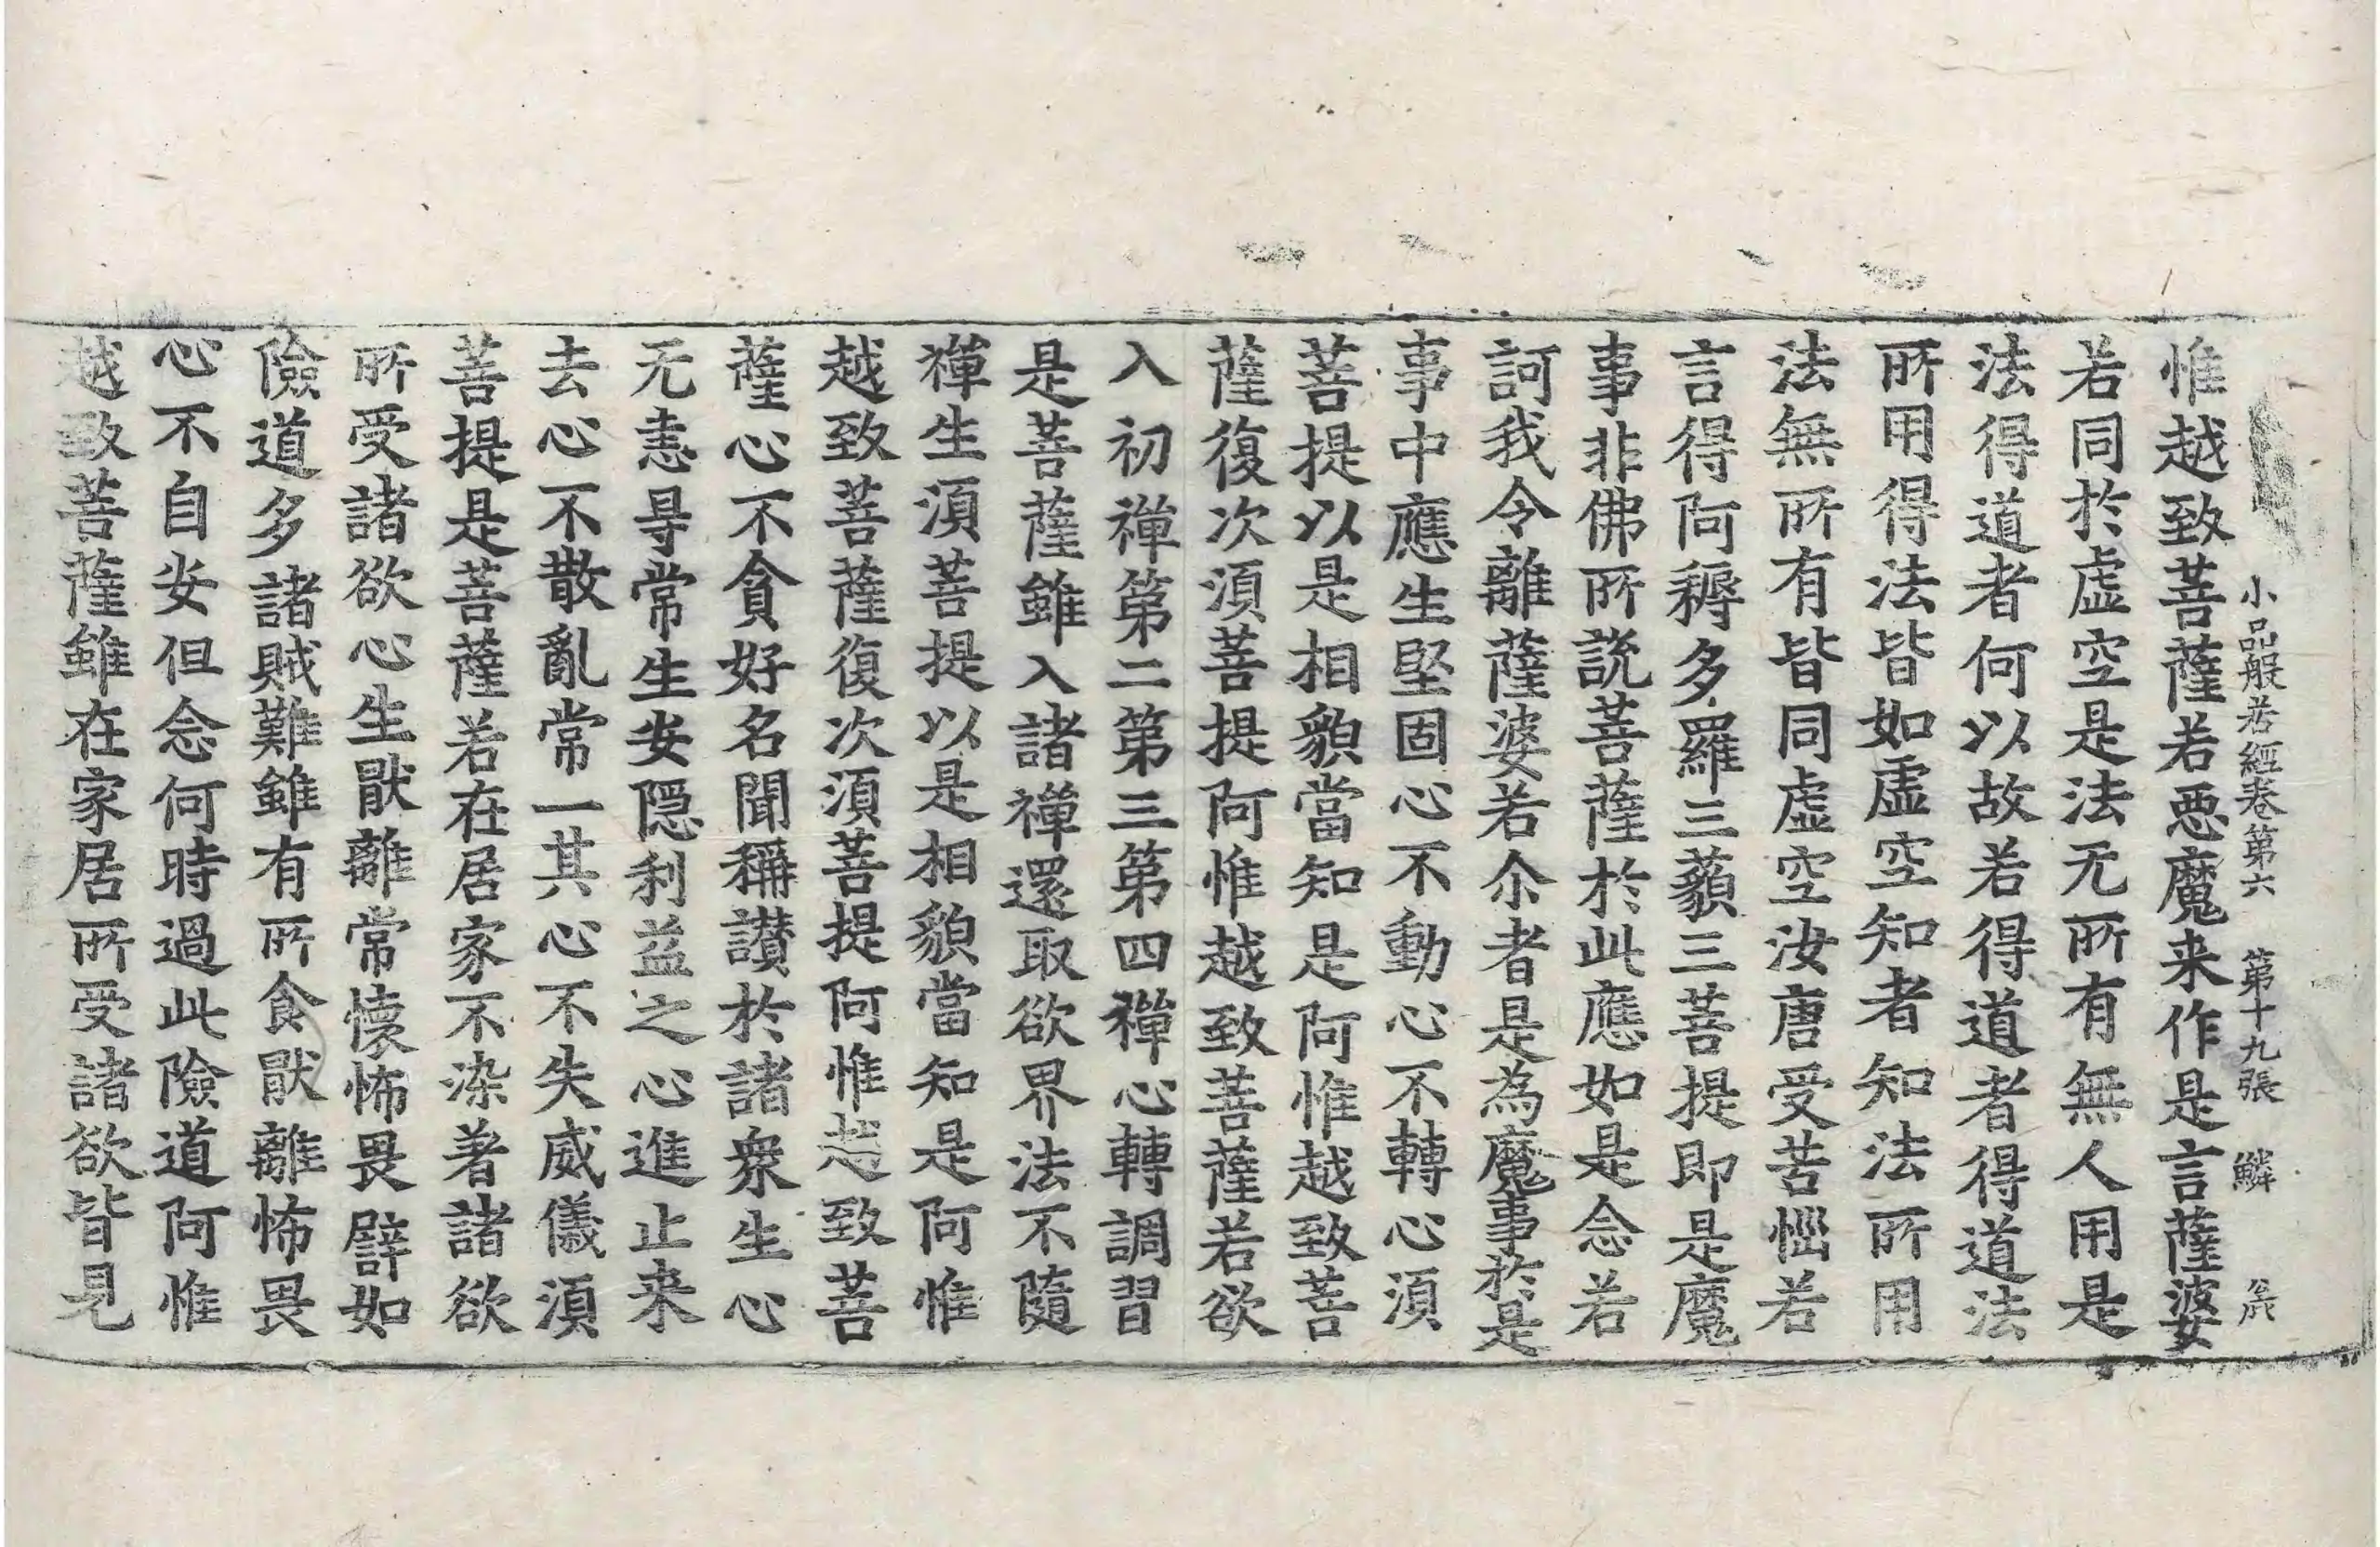 小品般若經卷第六　第十九張　鱗
惟越致菩薩若惡魔来作是言薩婆
若同於虛空是法无所有無人用是
法得道者何以故若得道者得道法
所用得法皆如虛空知者知法所用
法無所有皆同虛空汝唐受苦惱若
言得阿耨多羅三藐三菩提即是魔
事非佛所說菩薩於此應如是念若
訶我令離薩婆若尒者是為魔事於是
事中應生堅固心不動心不轉心須
菩提以是相貌當知是阿惟越致菩
薩復次須菩提阿惟越致菩薩若欲
入初禪第二第三第四禪心轉調習
是菩薩雖入諸禪還取欲界法不隨
禪生須菩提以是相貌當知是阿惟
越致菩薩復次須菩提阿惟越致菩
薩心不貪好名聞稱讃於諸衆生心
无恚㝵常生安隱利益之心進止来
去心不散亂常一其心不失威儀須
菩提是菩薩若在居家不染著諸欲
所受諸欲心生猒離常懷怖畏譬如
險道多諸賊難雖有所食猒離怖畏
心不自安但念何時過此險道阿惟
越致菩薩雖在家居所受諸欲皆見